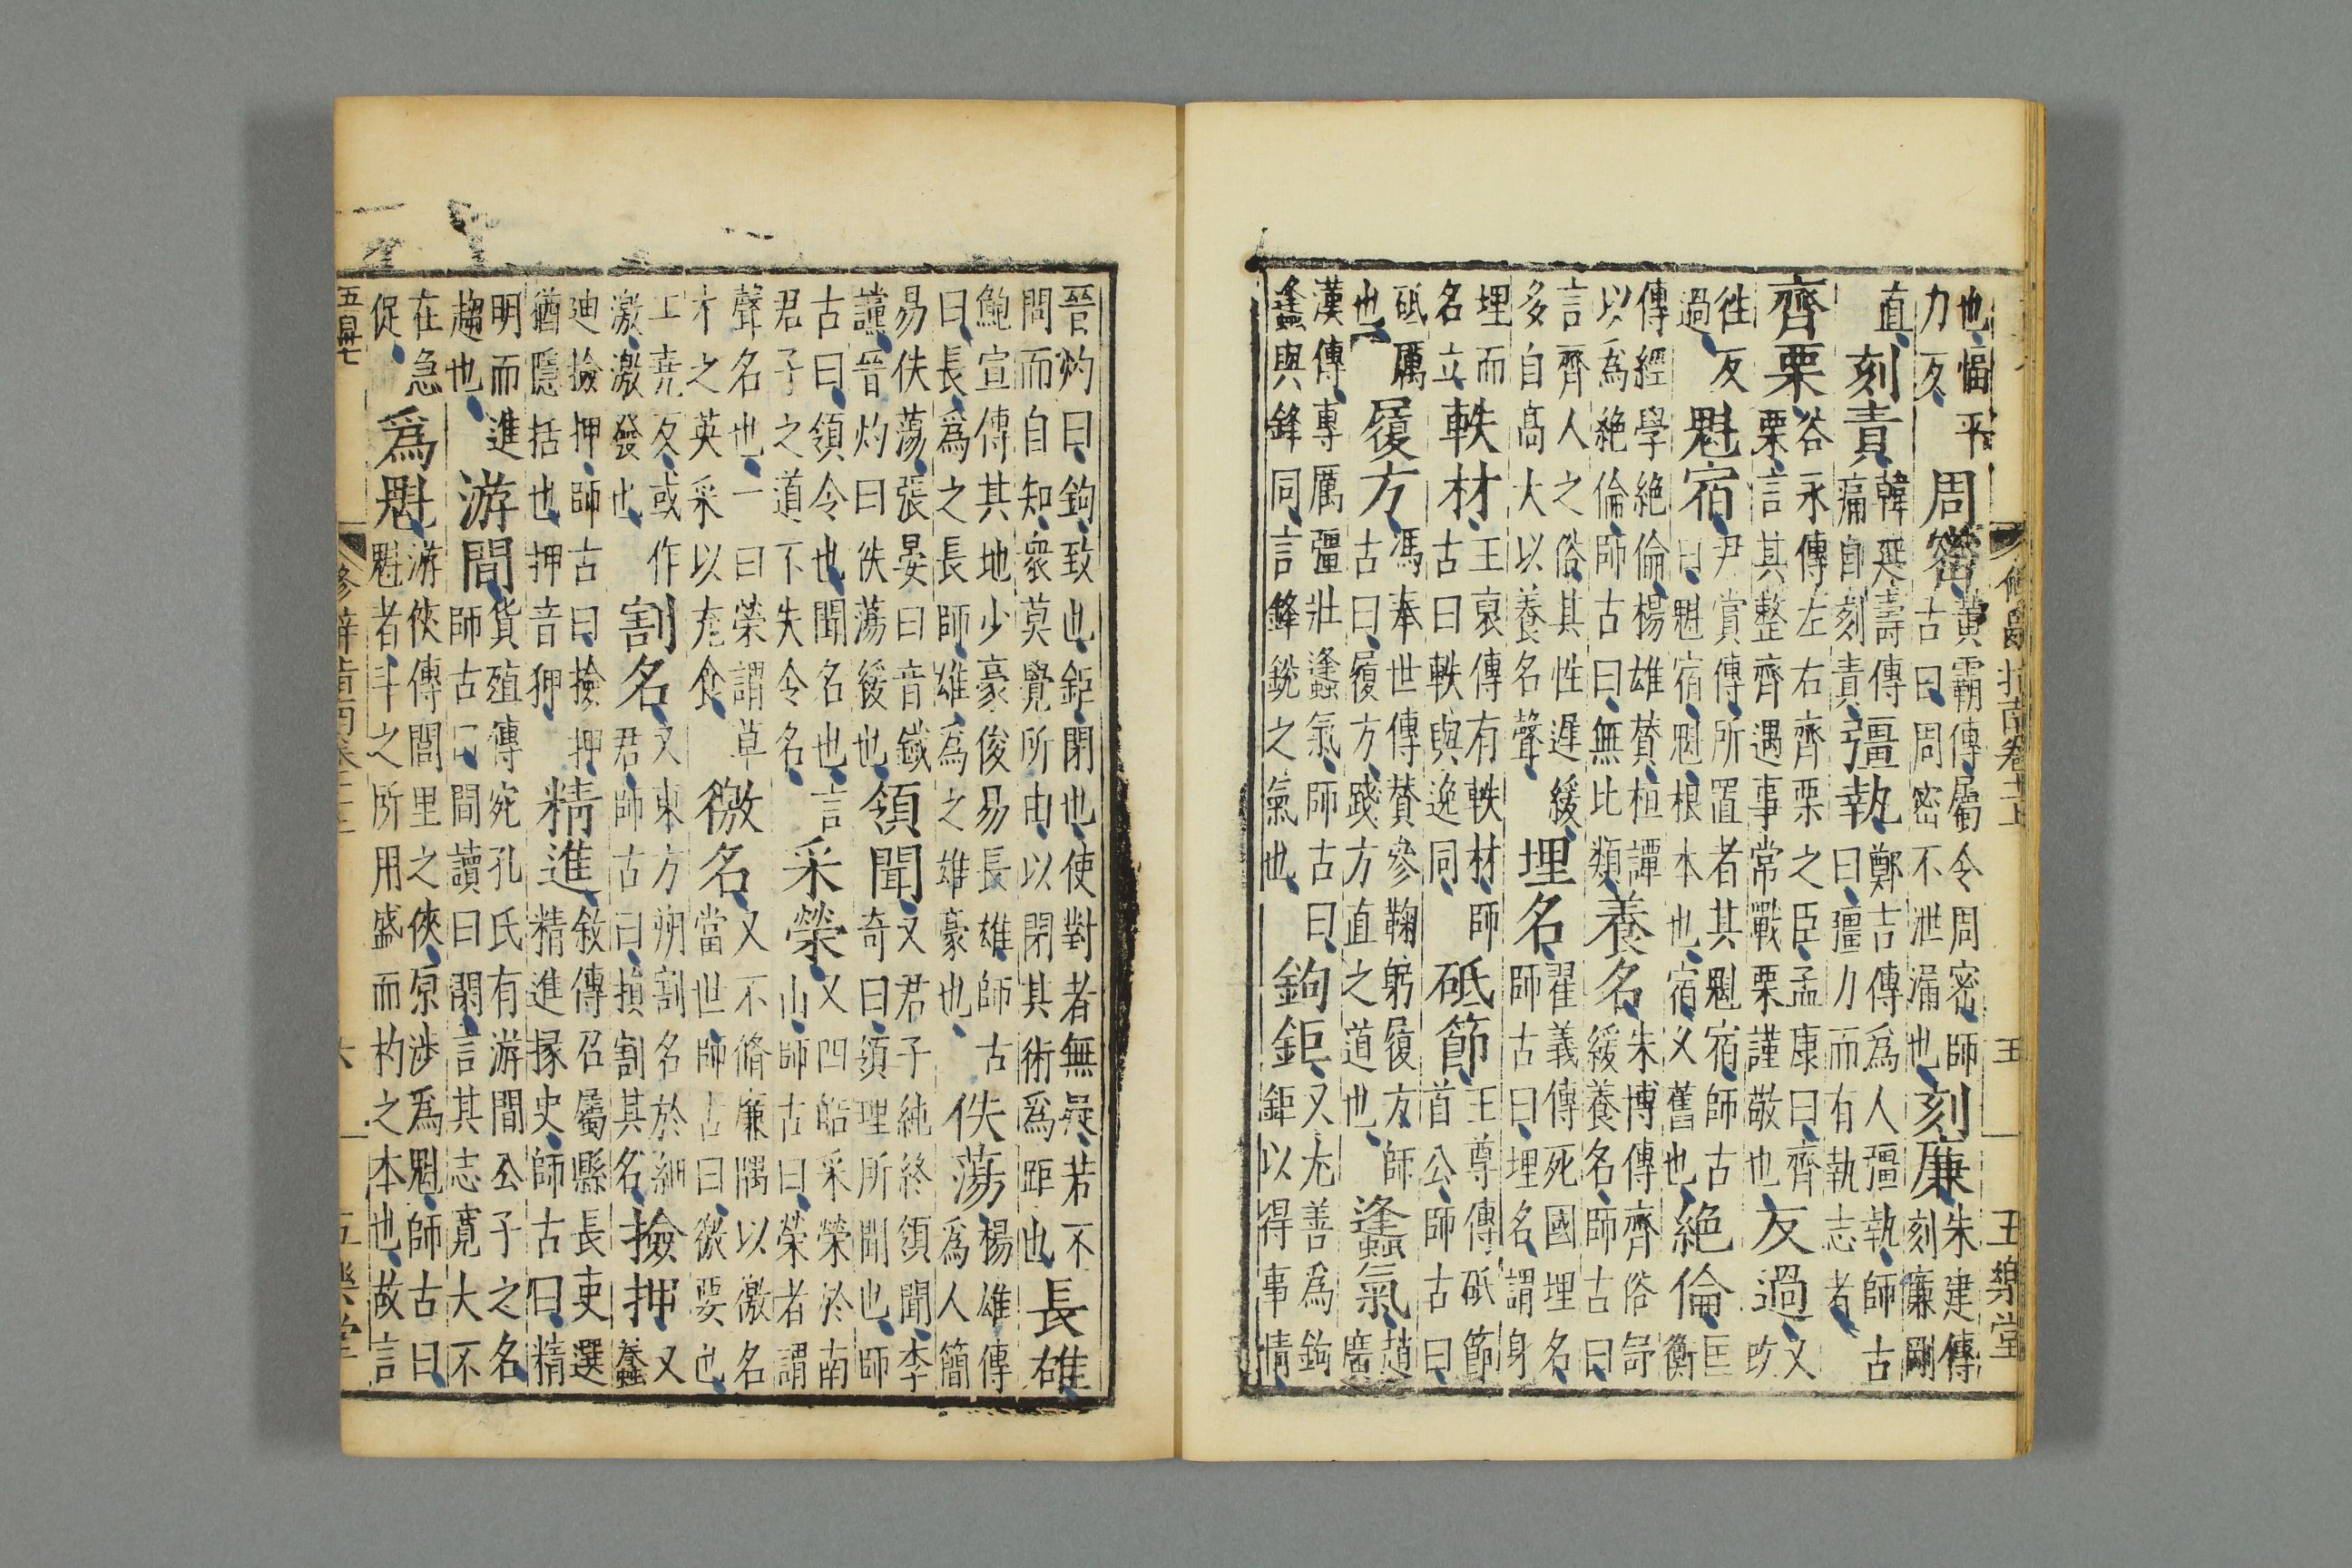 修辭指南卷 五 五樂堂
也愊平力反周密黃霸傳屬令周密師古曰周密不泄漏也刻廉朱建傳刻廉剛
直刻責韓延壽傳痛自刻責彊執鄭吉傳爲人彊執師古曰彊力而有執志者
齊栗谷永傳左右齊栗之臣孟康曰齊栗言其整齊遇事常戰栗謹敬也反過又改
徃反過魁宿尹賞傳所置者其魁宿師古曰魁宿魁根本也宿又舊也絶倫匡衡
傳經學絶倫楊雄賛桓譚以爲絶倫師古曰無比類養名朱博傳齊俗舒緩養名師古曰
言齊人之俗其性遲緩多自高大以養名聲埋名翟義傳死國埋名師古曰埋名謂身
埋而名立軼材王裒傳有軼材師古曰軼與逸同砥節王尊傳砥節首公師古曰
砥厲也履方馮奉世傳賛參鞠躬履方師古曰履方踐方直之道也蠭氣趙廣
漢傳專厲彊壯蠭氣師古曰蠭與鋒同言鋒銳之氣也鉤鉅又尤善爲鉤鉅以得事情
晉灼曰鉤致也鉅閉也使對者無疑若不問而自知衆莫覺所由以閉其術爲距也長雄
鮑宣傳其地少豪俊易長雄師古曰長爲之長師雄爲之雄豪也佚蕩楊雄傳爲人簡
易佚蕩張晏曰音鐵讜晉灼曰佚蕩緩也領聞又君子純終領聞李奇曰領理所聞也師
古曰領令也聞名也言君子之道不失令名采榮又四皓采榮於南山師古曰榮者謂
聲名也一曰榮謂草木之英采以充食徼名又不脩廉隅以徼名當世師古曰徼要也
工堯反或作激激發也割名又東方朔割名於細君師古曰損割其名撿押又蠢
迪撿押師古曰撿押猶隱括也押音狎精進敘傳召屬縣長吏選精進掾史師古曰精
明而進趨也游閒貨殖傳宛孔氏有游閒公子之名師古曰閒讀曰閑言其志寬大不
在急促爲魁游俠傳閭里之俠原渉爲魁師古曰魁者斗之所用盛而杓之本也故言
五百卅七 修辭指南卷 六 五樂堂